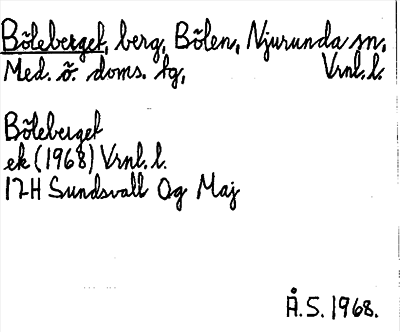 Böleberget, berg, Bölen, Njurunda sn,
Med. ö. doms. tg, Vrnl. l.
Böleberget
ek (1968) Vrnl. l.
17H Sundsvall Og Maj
Å. S. 1968.